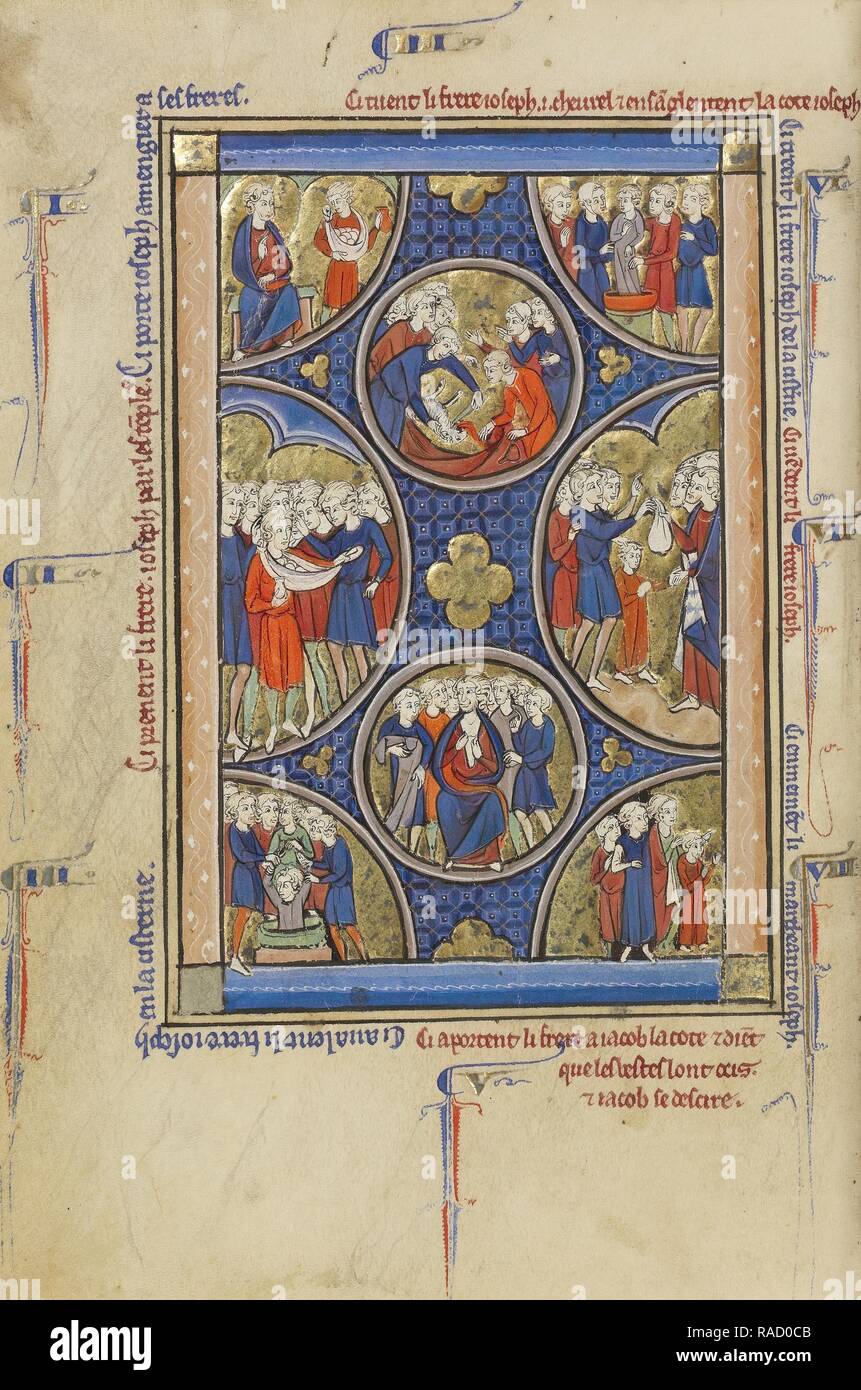 IIII
ses freres.
Ci tuent li frere ioseph .i. cheurel ⁊ ensãglentent la cote ioseph
Ci porte ioseph a mengier a
I
Ci prenent li frere. ioseph par les tẽple.
II
III
Ci aualent li frere ioseph
en la cisterne.
VI
Ci traient li frere ioseph de la cistne.
VII
Ci uẽdent li frere ioseph.
VIII
Ci enmainẽt li marcheant ioseph.
Ci aportent li frere a iacob la cote ⁊ diẽt
que les bestes lont ocis.
⁊ iacob se descire.
V
alamy
Image ID: RAD0CB
www.alamy.com